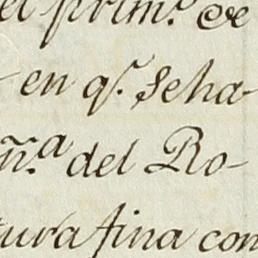 el prim.º de
en q.ᵉ se ha-
ñ.ª del Ro-
tura fina con